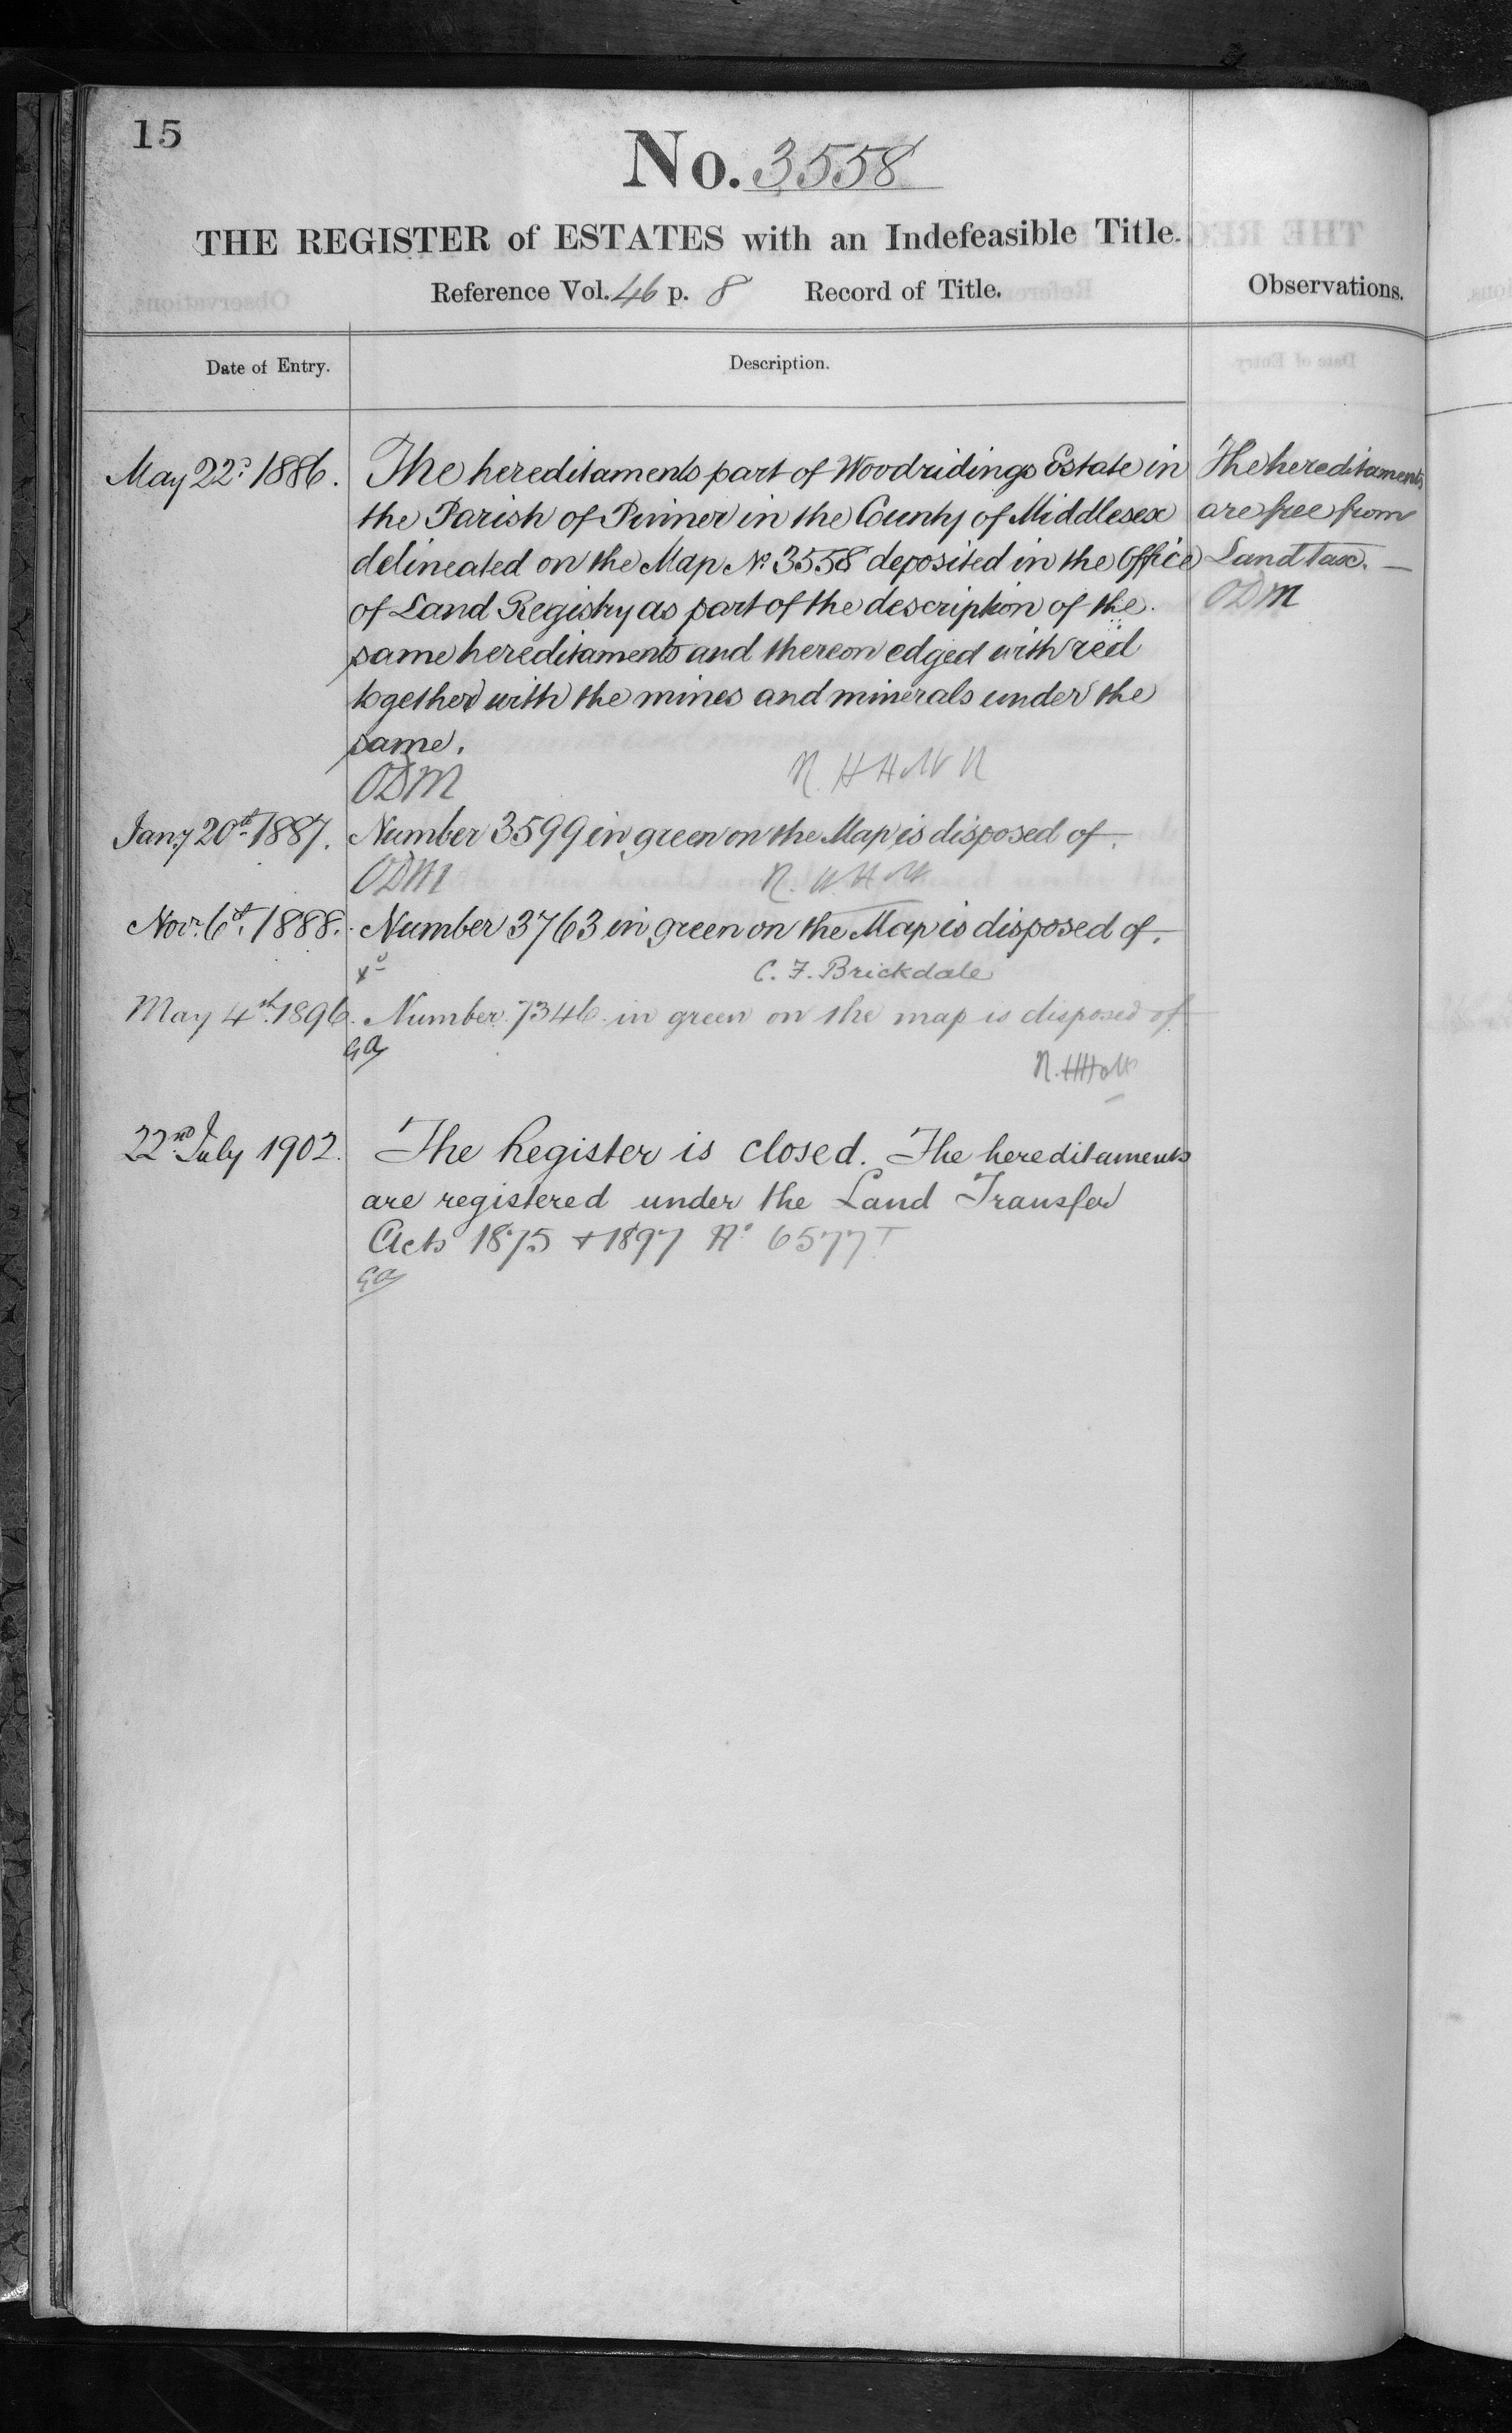 15
No. 3558
THE REGISTER of ESTATES with an Indefeasible Title.
Reference Vol. 46 p. 8 Record of Title.
Observations.
Date of Entry.
Description.
May 22d. 1886.
The hereditaments part of Woodridings Estate in
the Parish of Pinner in the County of Middlesex
delineated on the Map No. 3558 deposited in the Office
of Land Registry as part of the description of the
same hereditaments and thereon edged with red
together with the mines and minerals under the
same.
ODM
The hereditaments
are free from
Land tax. —
ODM
Jany 20th 1887.
Number 3599 in green on the Map is disposed of.
ODM
Novr. 6th. 1888.
Number 3763 in green on the Map is disposed of.
C. F. Brickdale
May 4th. 1896.
Number 7346 in green on the map is disposed of
GA
N. H Holt
22nd July 1902.
The Register is closed. The hereditaments
are registered under the Land Transfer
Acts 1875 + 1897 No 6577
GA